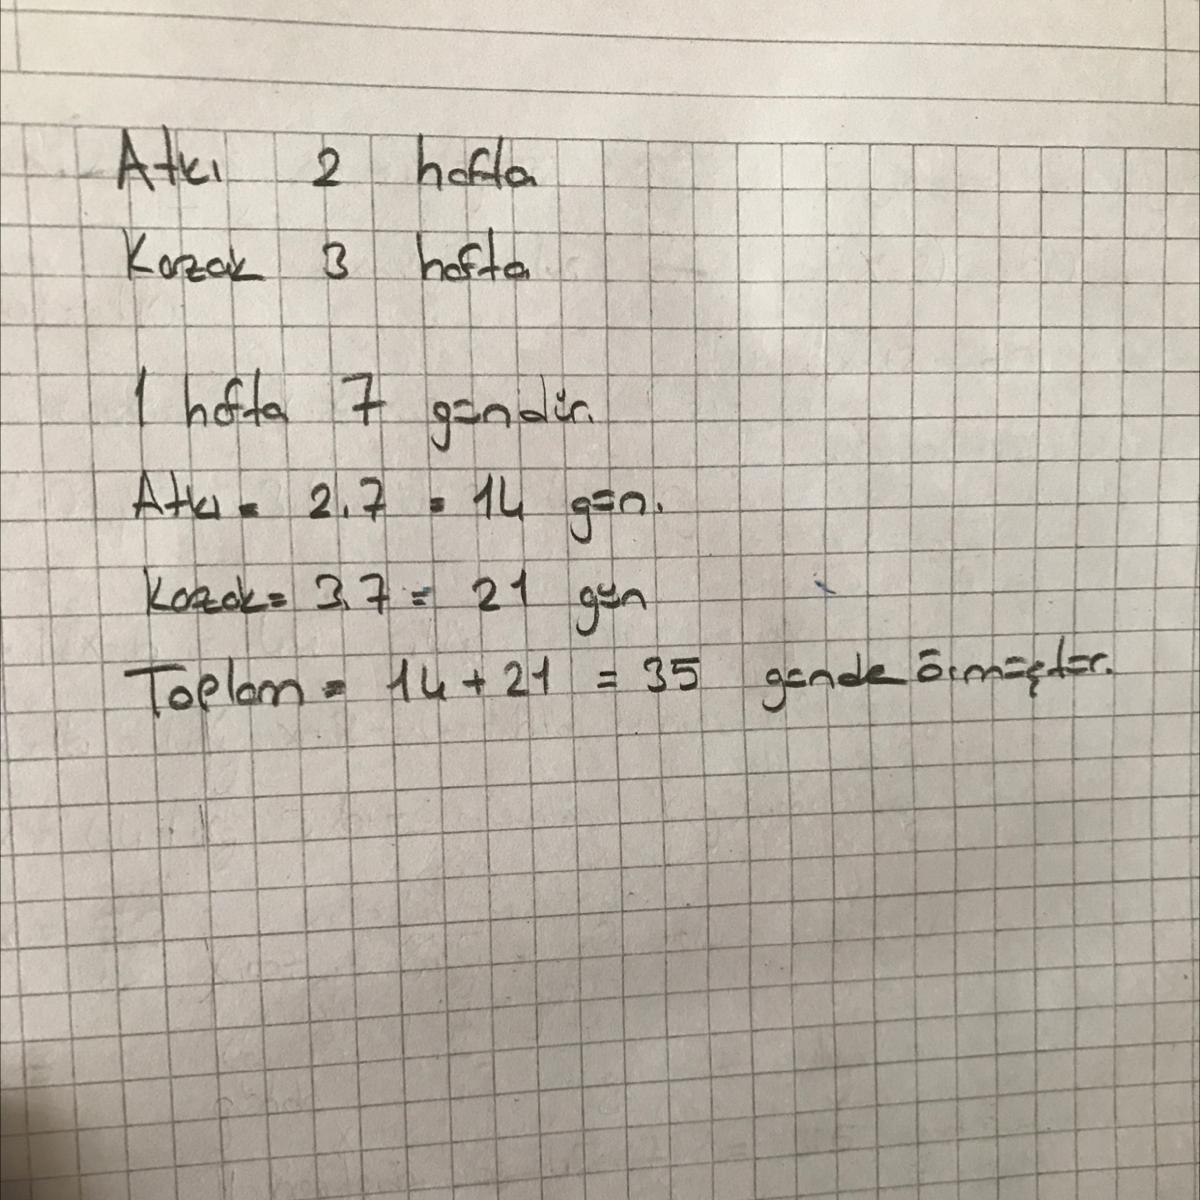 Atkı 2 hafta
Kazak 3 hafta
1 hafta 7 gündür.
Atkı = 2.7 = 14 gün.
Kazak = 3.7 = 21 gün
Toplam = 14 + 21 = 35 günde örmüştür.